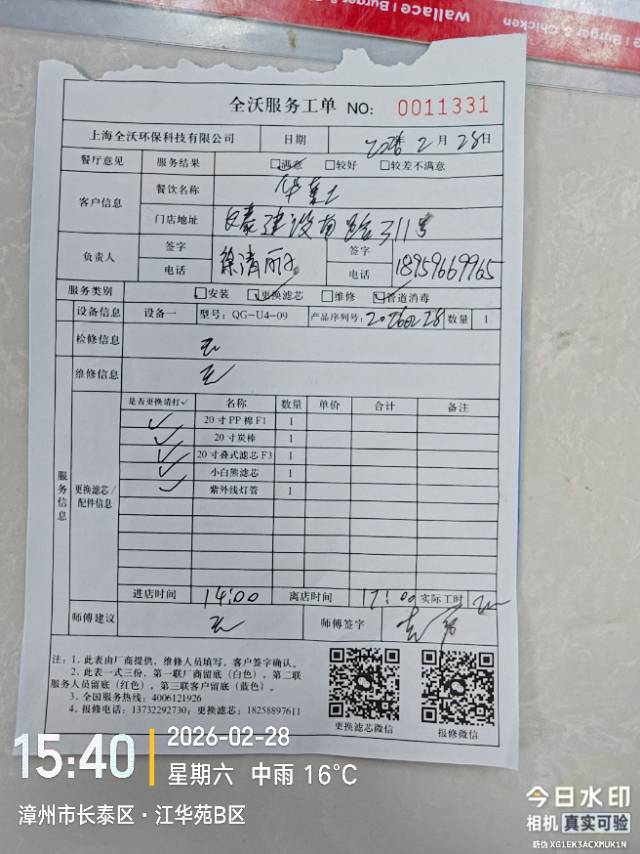 Wallace | Burger & Chicken
全沃服务工单 NO: 0011331
上海全沃环保科技有限公司 日期 2月28日
餐厅意见 服务结果 满意 较好 较差不满意
客户信息 餐饮名称 华莱士
门店地址 建设南路311号
负责人 签字 徐清丽 签字
电话 电话 18959669965
服务类别 安装 更换滤芯 维修 管道消毒
设备信息 设备一 型号: QG-U4-09 产品序列号: 20260228 数量 1
检修信息 无
维修信息 无
服务信息
更换滤芯/配件信息
是否更换请打✓ 名称 数量 单价 合计 备注
✓ 20寸PP棉F1 1
✓ 20寸炭棒 1
✓ 20寸叠式滤芯F3 1
✓ 小白熊滤芯 1
✓ 紫外线灯管 1
进店时间 14:00 离店时间 17:00 实际工时
师傅建议 无 师傅签字
注: 1. 此表由厂商提供, 维修人员填写, 客户签字确认。
2. 此表一式三份, 第一联厂商留底 (白色), 第二联
服务人员留底 (红色), 第三联客户留底 (蓝色)。
3. 全国服务热线: 4006121926
4. 报修电话: 13732292730; 更换滤芯: 18258897611
更换滤芯微信 报修微信
15:40 2026-02-28
星期六 中雨 16°C
漳州市长泰区·江华苑B区
今日水印
相机 真实可验
防伪 XG1EK3ACXMUK1N